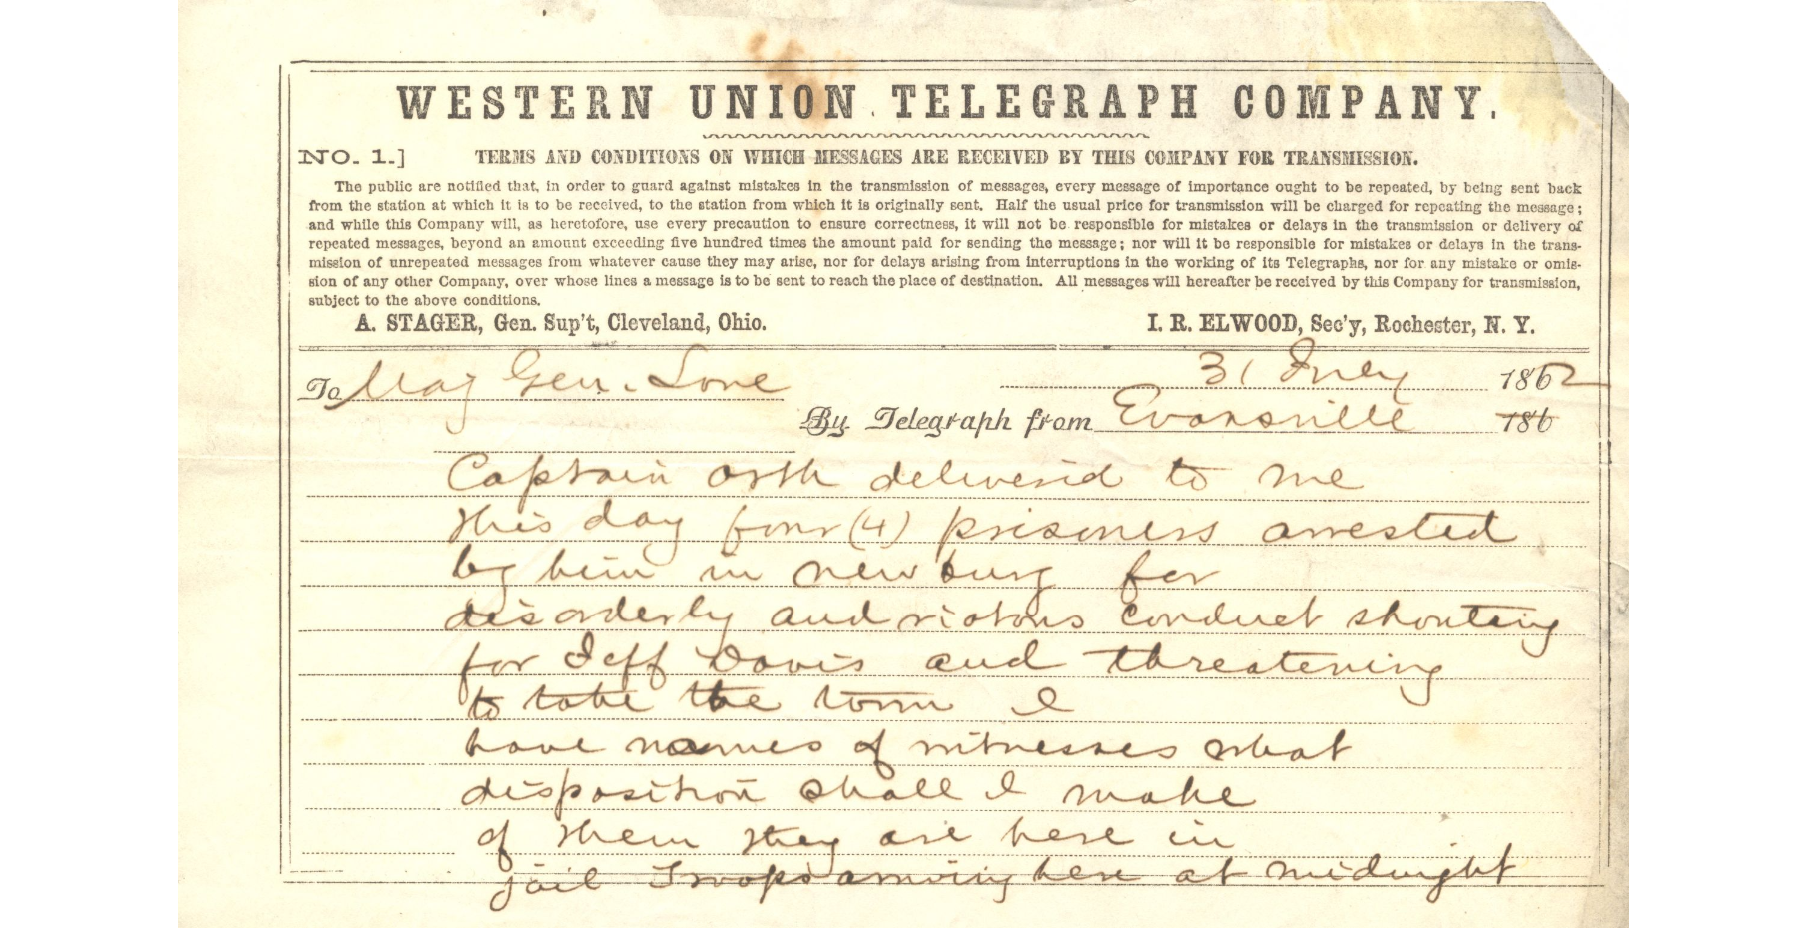 WESTERN UNION TELEGRAPH COMPANY.
NO. 1.] TERMS AND CONDITIONS ON WHICH MESSAGES ARE RECEIVED BY THIS COMPANY FOR TRANSMISSION.
The public are notified that, in order to guard against mistakes in the transmission of messages, every message of importance ought to be repeated, by being sent back
from the station at which it is to be received, to the station from which it is originally sent. Half the usual price for transmission will be charged for repeating the message;
and while this Company will, as heretofore, use every precaution to ensure correctness, it will not be responsible for mistakes or delays in the transmission or delivery of
repeated messages, beyond an amount exceeding five hundred times the amount paid for sending the message; nor will it be responsible for mistakes or delays in the trans-
mission of unrepeated messages from whatever cause they may arise, nor for delays arising from interruptions in the working of its Telegraphs, nor for any mistake or omis-
sion of any other Company, over whose lines a message is to be sent to reach the place of destination. All messages will hereafter be received by this Company for transmission,
subject to the above conditions.
A. STAGER, Gen. Sup't, Cleveland, Ohio. I. R. ELWOOD, Sec'y, Rochester, N. Y.
To Maj Gen. Love 31 July 1862
By Telegraph from Evansville 186
Captain Orth deliverid to me
this day four (4) prisoners arrested
by him in newburg for
disorderly and riotous conduct shouting
for Jeff Davis and threatening
to take the town I
have names of witnesses what
disposition shall I make
of them they are here in
jail Troops arriving here at midnight